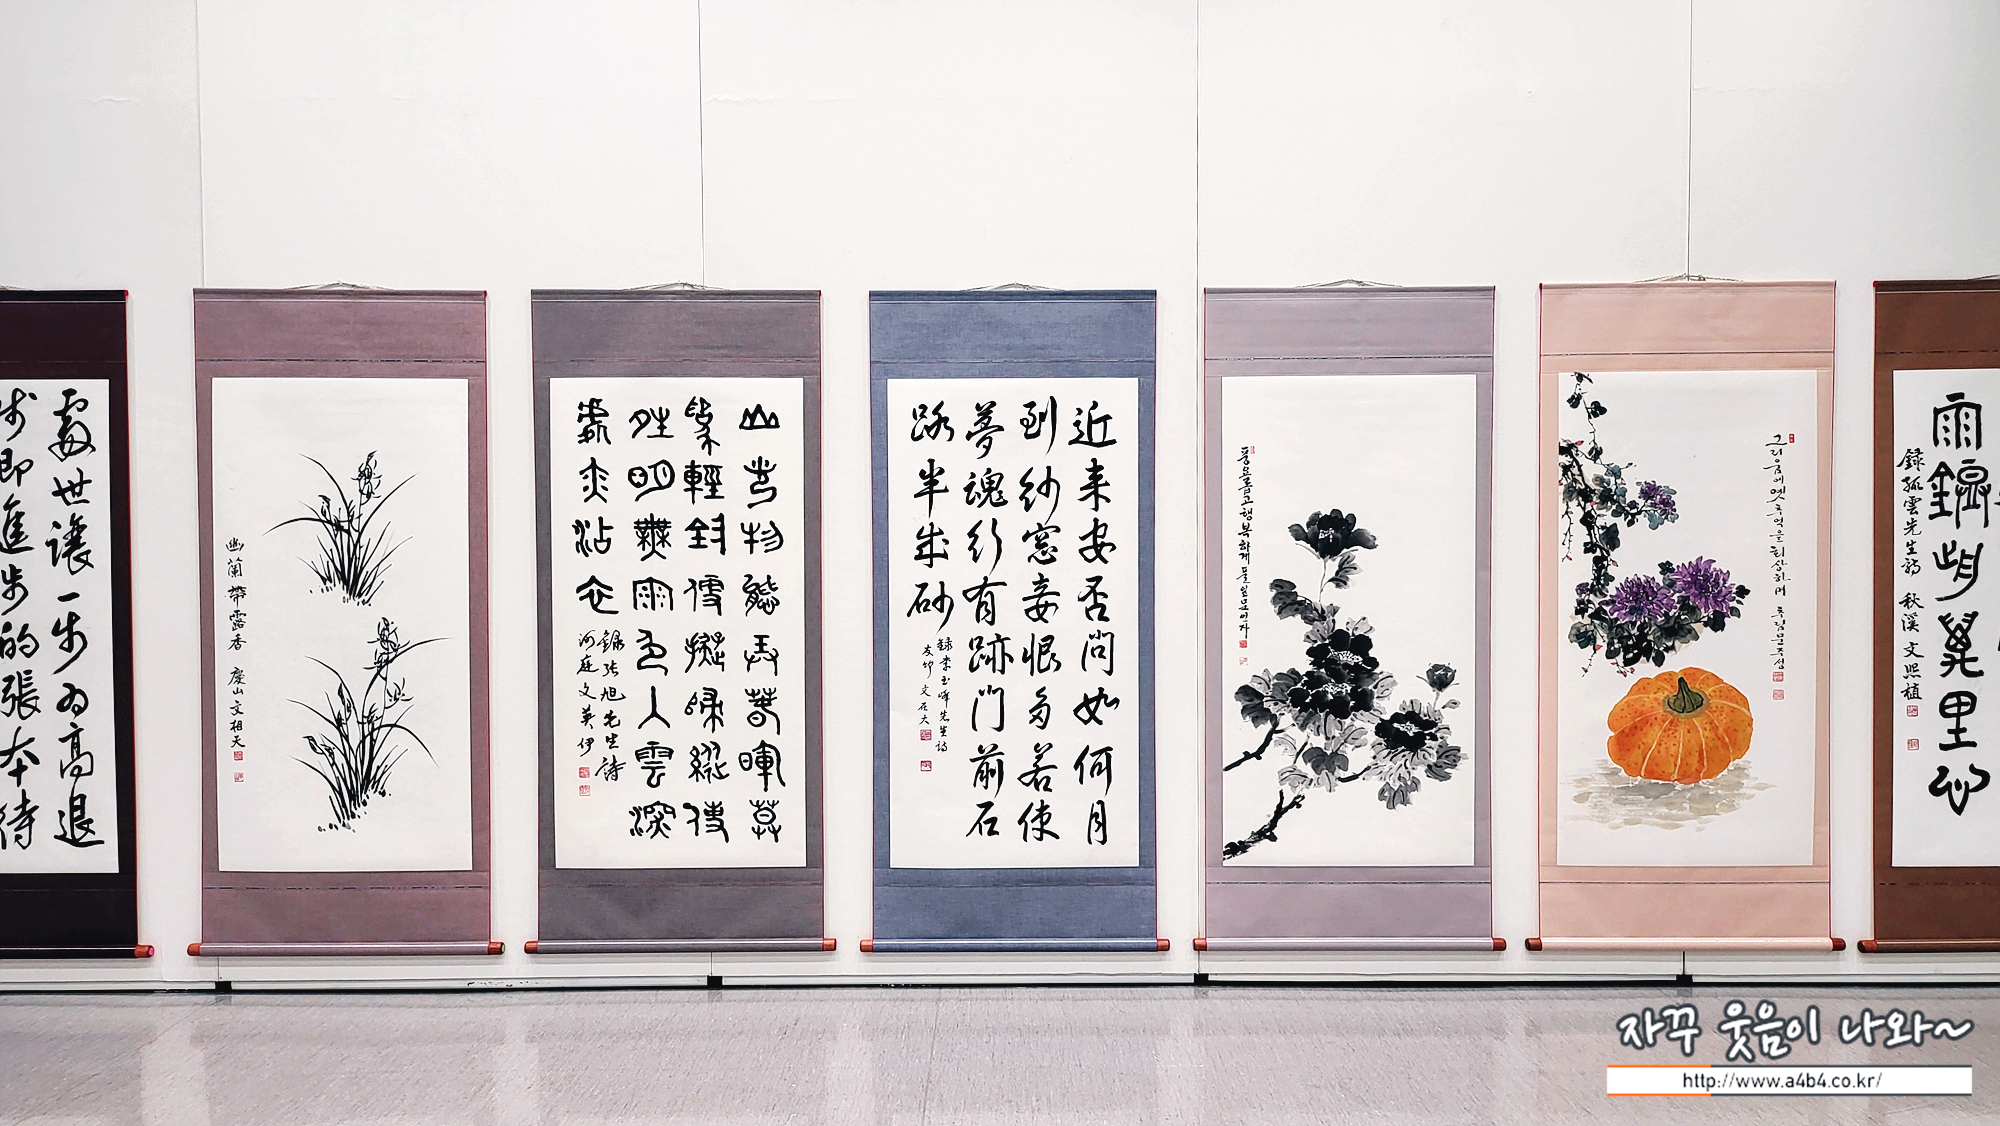 處世讓一步为高退
步即進步的張本待
幽蘭帶露香 慶山文相天
山光物態弄春暉莫
為輕陰便擬歸縱使
晴明無雨色入雲深
處亦沾衣
錄張旭先生詩
河庭 文美伊
近来安否問如何月
到紗窓妾恨多若使
夢魂行有跡門前石
路半成砂
錄李玉峰先生詩
友邨 文在大
풍요롭고 행복하게
그리움에 옛 추억을 회상하며 추림 문주성
雨鐙前萬里心
錄孤雲先生詩 秋溪 文熙植
자꾸 웃음이 나와~
http://www.a4b4.co.kr/